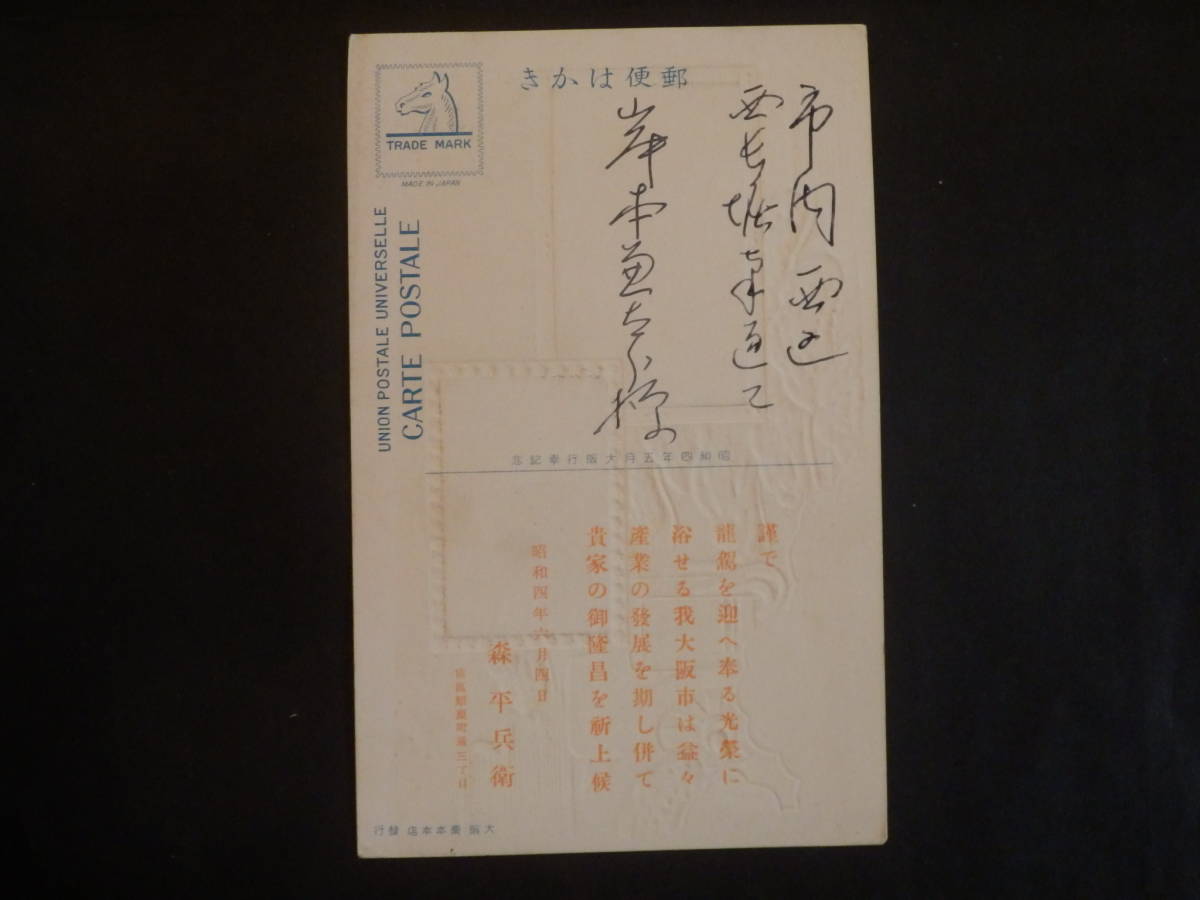 郵便はかき
TRADE MARK
MADE IN JAPAN
UNION POSTALE UNIVERSELLE
CARTE POSTALE
市内西区
西長堀南通二
岸本兼太郎様
昭和四年五月大阪行幸記念
謹で
龍駕を迎へ奉る光榮に
浴せる我大阪市は益々
產業の發展を期し併て
貴家の御隆昌を祈上候
昭和四年六月四日
森平兵衛
町通三丁目
大阪 本本店 發行